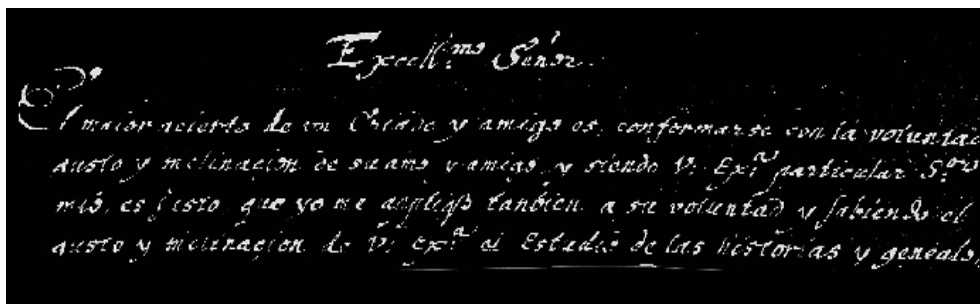 Excell.mo Señor.
El maior acierto de un Criado y amigo es, conformarse con la voluntad
gusto y inclinacion de su amo y amigo, y siendo V. Exª particular S.or
mio, es justo, que yo me aplique tanbien, a su voluntad y sabiendo el
gusto y inclinacion de V. Exª al Estudio de las historias y genealo